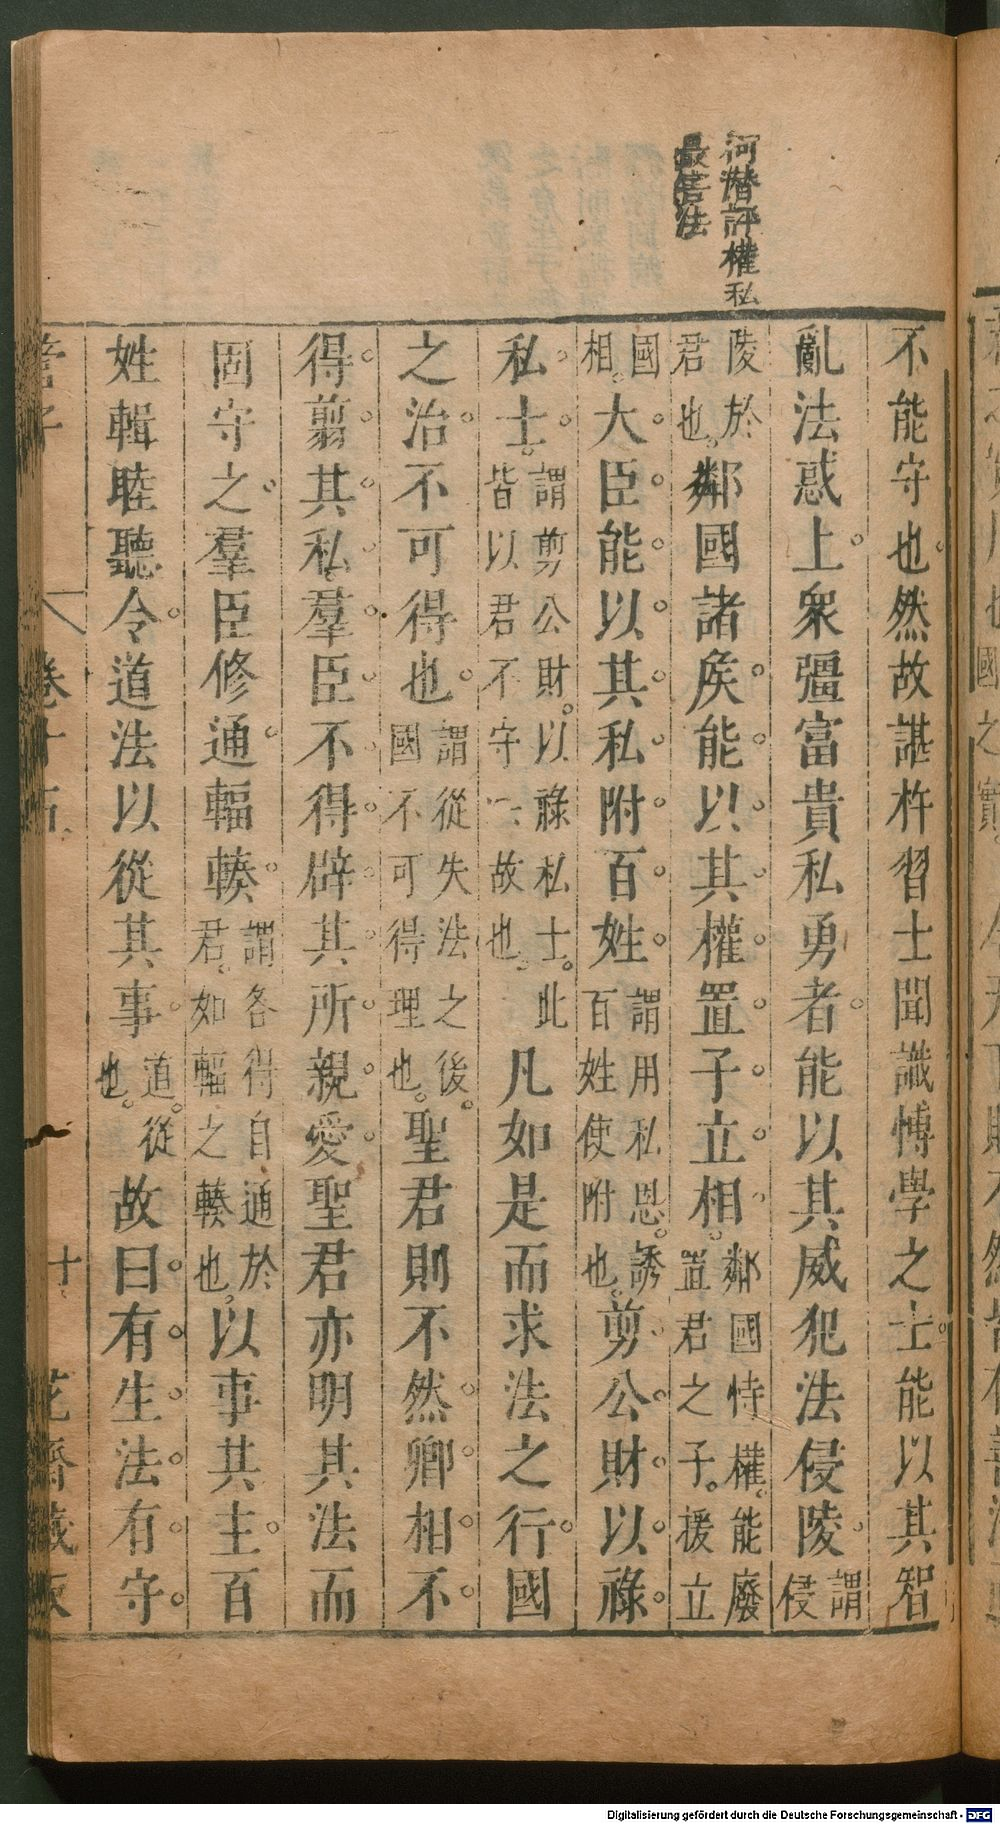 河潛評權私
最害法
不能守也。然故諶杵習士聞識博學之士。能以其智
亂法惑上。衆彊富貴私勇者。能以其威犯法侵陵。謂侵
陵於君也。鄰國諸矦能以其權置子立相。鄰國恃權。能廢置君之子。援立
國相。大臣能以其私附百姓。謂用私恩。誘百姓使附也。剪公財以祿
私士。謂剪公財。以祿私士。此皆以君不守一故也。凡如是而求法之行。國
之治。不可得也。謂從失法之後。國不可得理也。聖君則不然。卿相不
得翦其私。羣臣不得辟其所親愛。聖君亦明其法而
固守之。羣臣修通輻輳。謂各得自通於君。如輻之輳也。以事其主。百
姓輯睦聽令。道法以從其事。道。從也。故曰。有生法。有守
管子
卷十五
十
花齋藏板
Digitalisierung gefördert durch die Deutsche Forschungsgemeinschaft - DFG